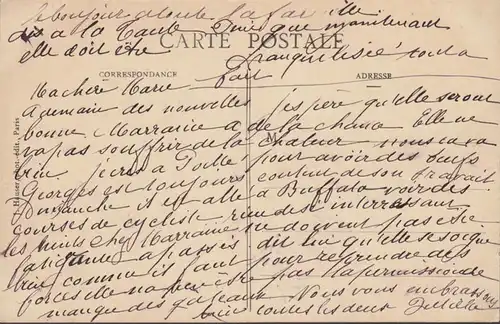 le bonjour à toute la famille
dis à la Tante Puis que maintenant
elle doit être
CARTE POSTALE
tranquilisée tout à
fait
CORRESPONDANCE
ADRESSE
Ma chère Marie
des nouvelles j'espère qu'elle seront
bonne. Marraine a de la chance Elle ne
va pas souffrir de la chaleur nous cava
bien. j'écris à pour avoir des
Georges est toujours content de son travail
Dimanche il est allé à Buffalo voir des
courses de cycliste rien de interressant
les nuits chez Marraine ne doivent pas être
fatigante a pas dit lui qu'elle se soigne
bien comme il faut pour reprendre des
forces elle n'a peut être pas la permission de
manque des gateaux Nous vous embrassons
bien toutes les deux
M
Hauser, phot.-édit., Paris